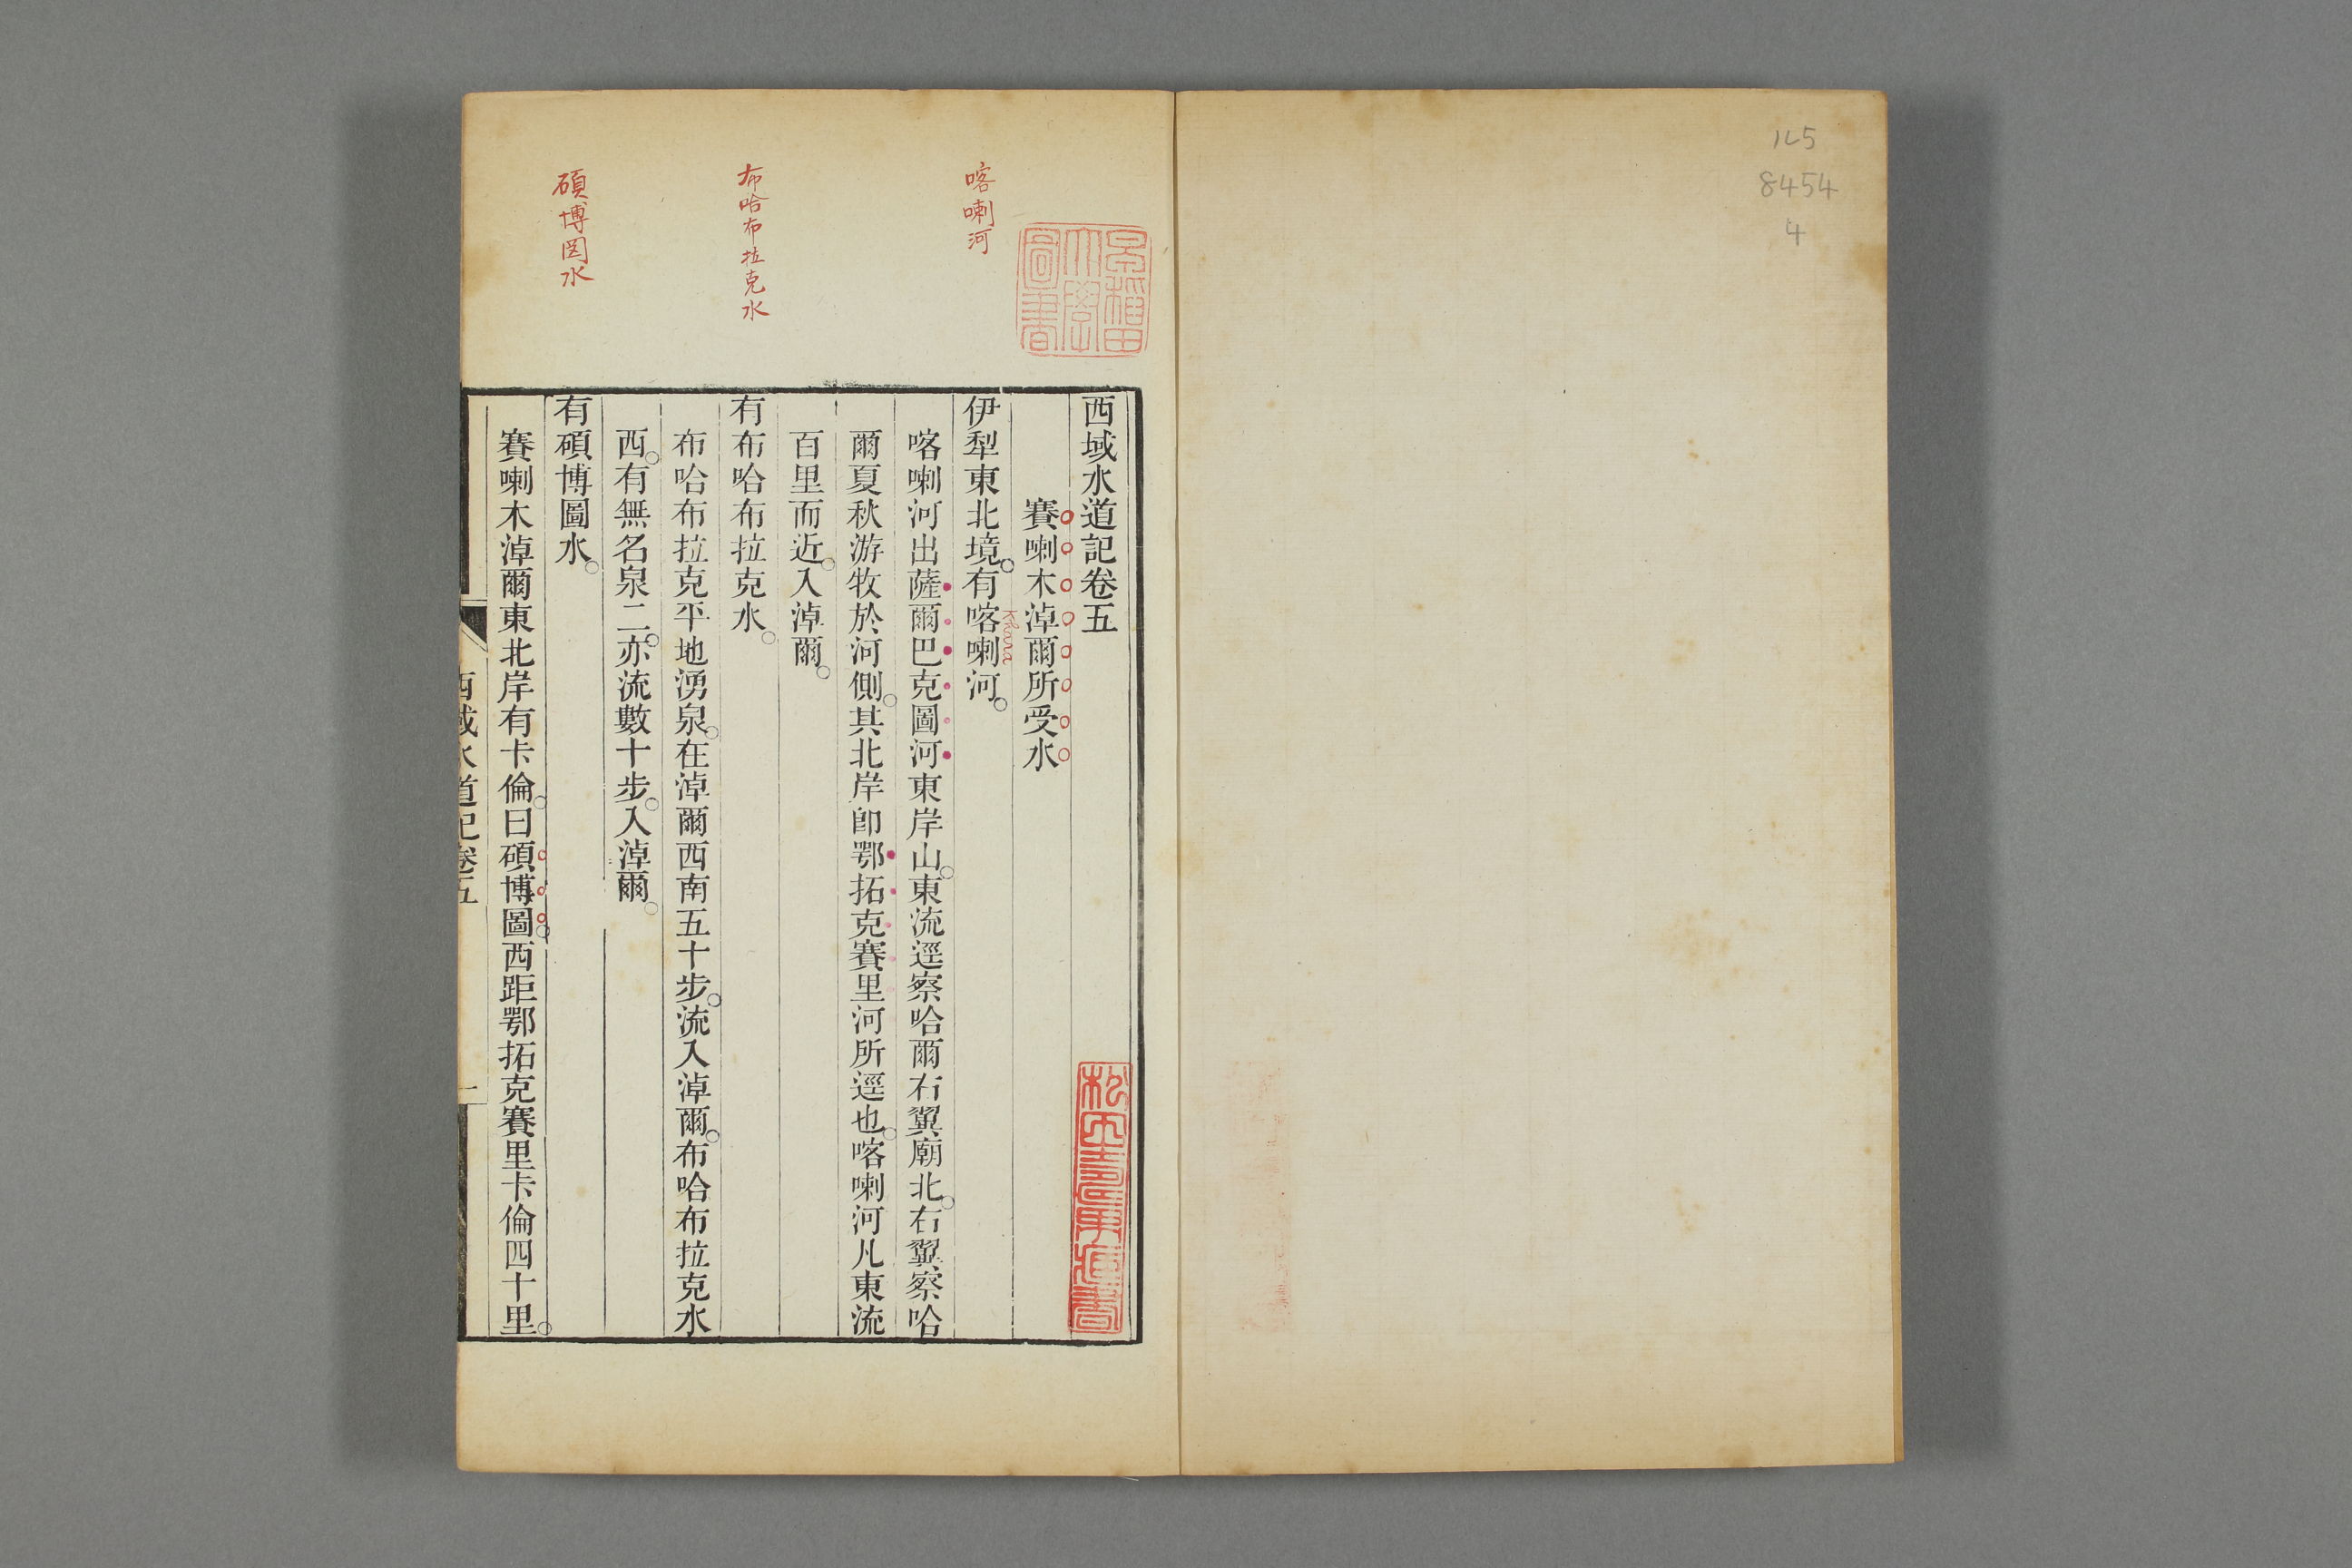 ル5
8454
4
早稲田
大學
圖書
喀喇河
布哈布拉克水
碩博图水
西域水道記卷五
賽喇木淖爾所受水
伊犁東北境。有喀喇河。
Khara
喀喇河出薩爾巴克圖河東岸山。東流逕察哈爾右翼廟北。右翼察哈
爾夏秋游牧於河側。其北岸卽鄂拓克賽里河所逕也。喀喇河凡東流
百里而近。入淖爾。
有布哈布拉克水。
布哈布拉克平地湧泉。在淖爾西南五十步。流入淖爾。布哈布拉克水
西。有無名泉二。亦流數十步。入淖爾。
有碩博圖水。
賽喇木淖爾東北岸有卡倫。曰碩博圖。西距鄂拓克賽里卡倫四十里。
西域水道記卷五
一